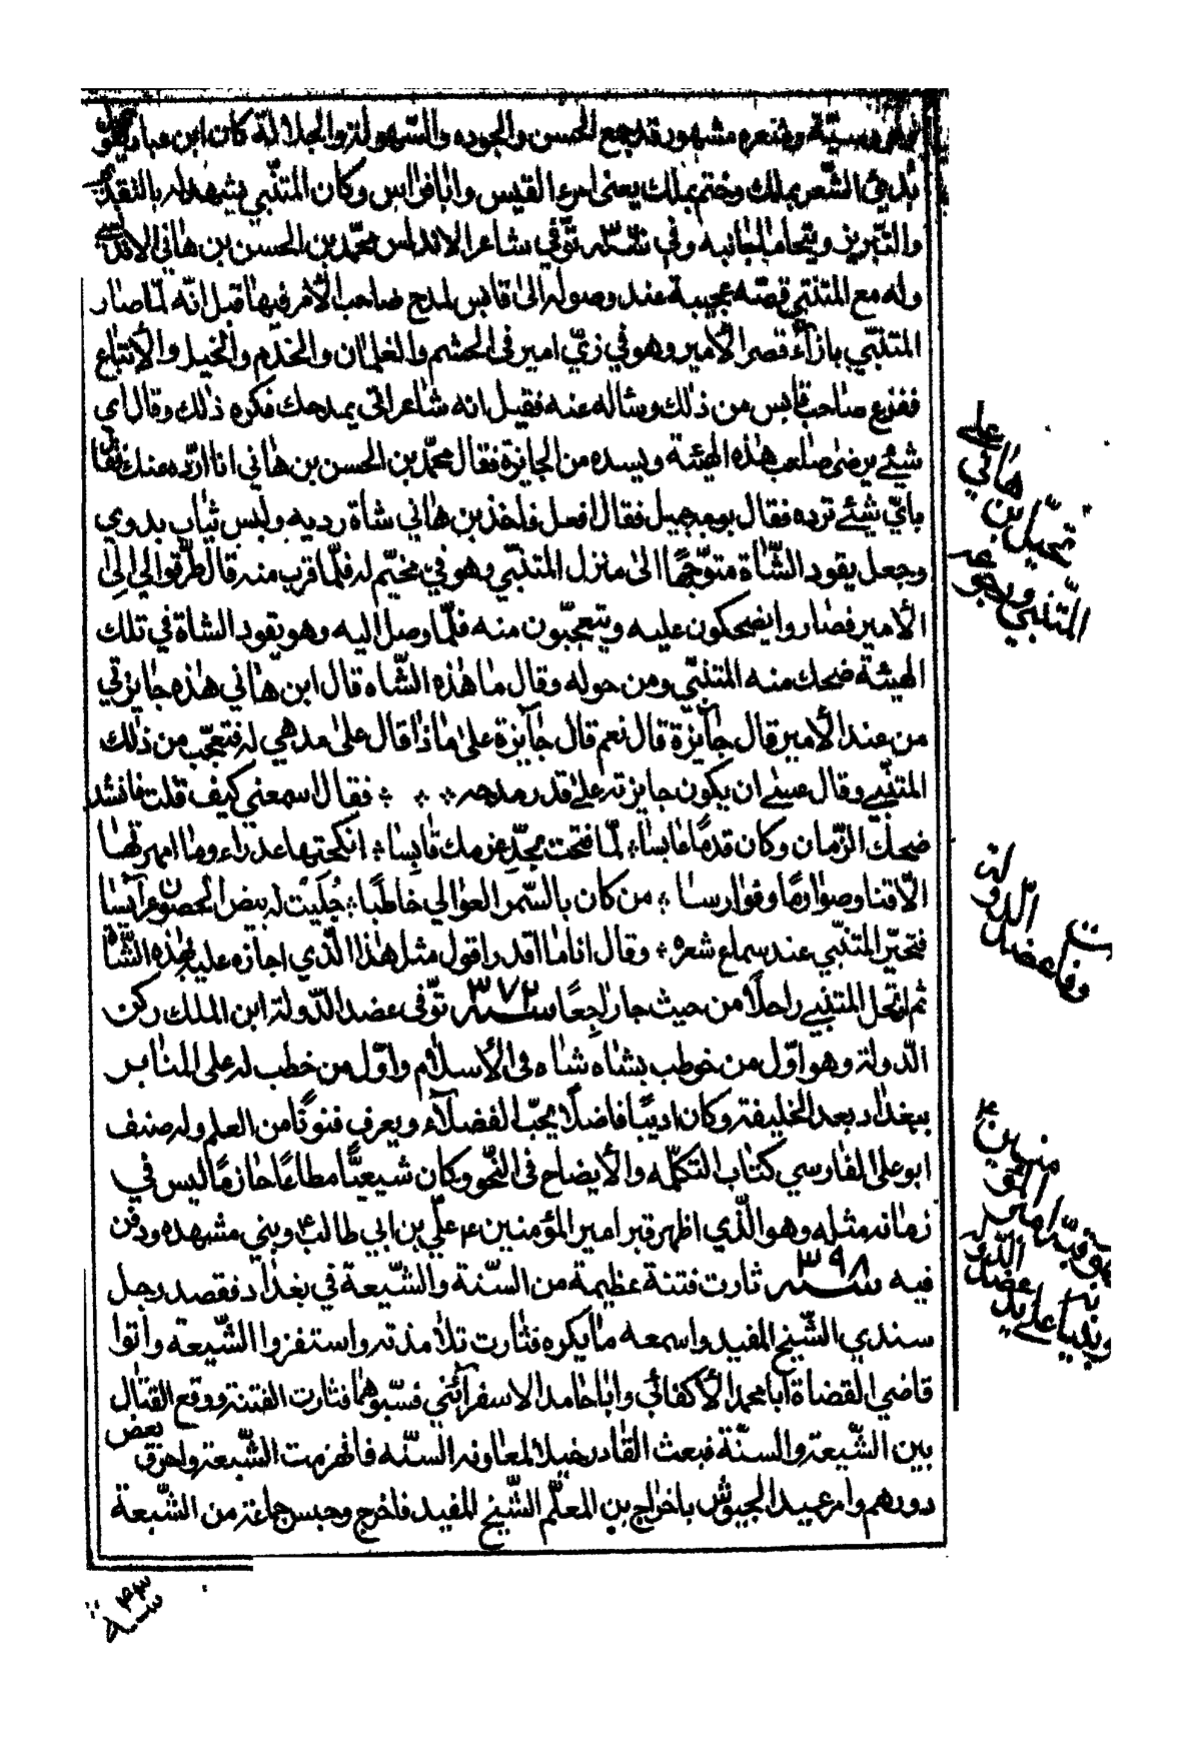 وشعره مشهور قد جمع الحسن والجوده والسهولة والجلالة كان ابن عباد يقول
بدئ الشعر بملك وختم بملك يعنى امرء القيس وابا فراس وكان المتنبي يشهد له بالتقدم
والتبريز ويتحاما لجانبه وفي توفي شاعر الاندلس محمد بن الحسن بن هاني الاندلسي
وله مع المتنبي قصه عجيبة عند وصوله الى قابس لمدح صاحب الأمر فيها قيل انه لما صار
المتنبي بازآء قصر الأمير وهو في زي امير فى الحشم والغلمان والخدم والخيل والأتباع
ففزع صاحب قابس من ذلك وساله عنه فقيل انه شاعر اتى يمدحك فكره ذلك وقال اى
شيئ يرضى صاحب هذه الهيئة ويسده من الجايزة فقال محمد بن الحسن بن هاني انا ارده عنك فقال
باي شيئ ترده فقال بوجه جميل فقال افعل فاخذ بن هاني شاة رديه ولبس ثياب بدوي
وجعل يقود الشاة متوجها الى منزل المتنبي وهو في مخيم له فلما قرب منه قال طرقوا لي الى
الأمير فصاروا يضحكون عليه ويتعجبون منه فلما وصل اليه وهو يقود الشاة في تلك
الهيئة ضحك منه المتنبي ومن حوله وقال ما هذه الشاه قال ابن هاني هذه جايزتي
من عند الأمير قال جآيزة قال نعم قال جآيزة على ماذا قال على مدحي له فتعجب من ذلك
المتنبي وقال عسى ان يكون جايزته على قدر مدحه ؞ ؞ ؞ فقال اسمعني كيف قلت فانشد
ضحك الزمان وكان قدما عابسا؞ لما فتحت بحد عزمك قابسا؞ انكحتها عذراء وما امهرتها
الا قنا وصوارما وفوارسا ؞ من كان بالسمر العوالي خاطبا؞ جليت له بيض الحصون عرآيسا
فتحير المتنبي عند سماع شعره؞ وقال انا ما اقدر اقول مثل هذا الذي اجازه عليه بهذه الشاة
ثم ارتحل المتنبي راحلا من حيث جا راجعا سنه ٣٧٢ توفى عضد الدولة ابن الملك ركن
الدولة وهو اول من خوطب بشاه شاه فى الأسلام واول من خطب له على المنابر
ببغداد بعد الخليفة وكان اديبا فاضلا يحب الفضلآء ويعرف فنونا من العلم وله صنف
ابو على الفارسي كتاب التكمله والأيضاح فى النحو وكان شيعيا مطاعا حازما ليس في
زمانه مثله وهو الذي اظهر قبر امير المؤمنين ع علي بن ابي طالب ع وبني مشهده ودفن
فيه سنه ٣٩٨ ثارت فتنة عظيمة من السنة والشيعة في بغداد فقصد رجل
سندي الشيخ المفيد واسمعه ما يكره فثارت تلامذته واستفزوا الشيعة واتوا
قاضي القضاة ابا محمد الأكفاني وابا حامد الاسفرآئني فسبوهما فثارت الفتنة ووقع القتال
بين الشيعة والسنة فبعث القادر خيلا لمعاونه السنه فانهزمت الشيعة واحرق بعض
دورهم وامر عميد الجيوش باخراج بن المعلم الشيخ المفيد فاخرج وحبس جماعة من الشيعة
على
هاني
تحيل بن
المتنبي ورجوعه
وفات
عضد الدولة
عضد الدوله